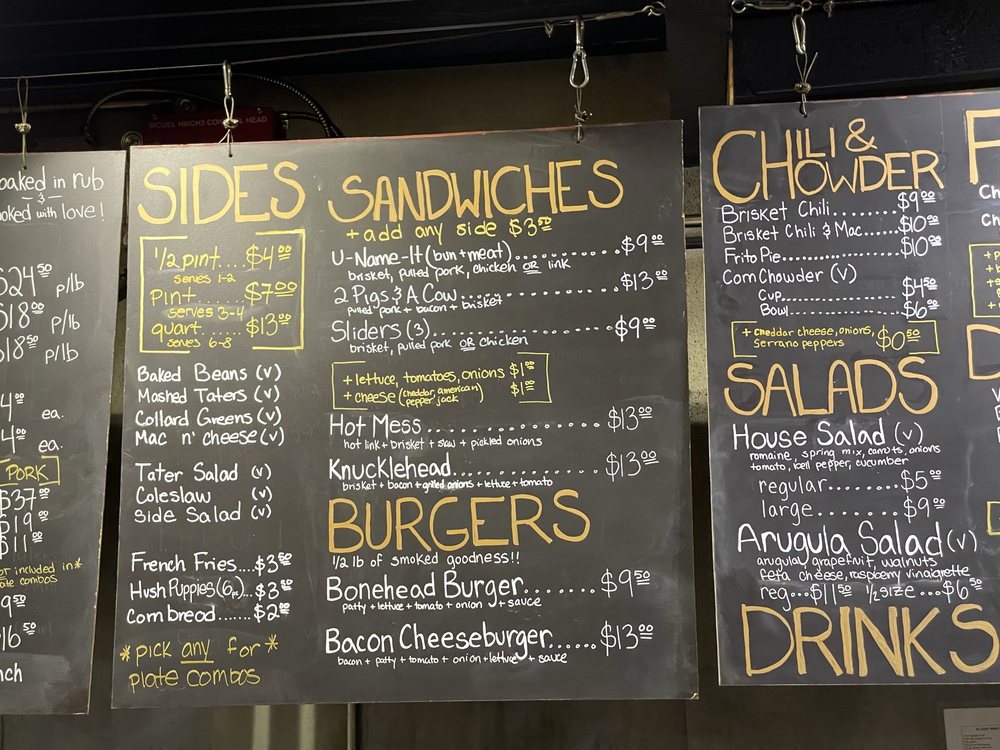 MODEL NMCH3 CONTROL HEAD
oaked in rub
&
oked with love!
$24⁵⁰ p/lb
$18⁰⁰ p/lb
$18⁵⁰ p/lb
4⁰⁰ ea.
4⁰⁰ ea.
PORK
$37⁰⁰
$19⁰⁰
$11⁰⁰
included in*
combos
9⁵⁰
16⁵⁰
nch
SIDES
1/2 pint.... $4⁰⁰
serves 1-2
Pint....... $7⁰⁰
serves 3-4
quart...... $13⁰⁰
serves 6-8
Baked Beans (v)
Mashed Taters (v)
Collard Greens (v)
Mac n' cheese (v)
Tater Salad (v)
Coleslaw (v)
Side Salad (v)
French Fries....$3⁵⁰
Hush Puppies (6)...$3⁵⁰
Cornbread......$2⁰⁰
*pick any for*
plate combos
SANDWICHES
+ add any side $3⁵⁰
U-Name-It (bun + meat)............... $9⁰⁰
brisket, pulled pork, chicken OR link
2 Pigs & A Cow...................... $13⁰⁰
pulled pork + bacon + brisket
Sliders (3)......................... $9⁰⁰
brisket, pulled pork OR chicken
+ lettuce, tomatoes, onions $1⁰⁰
+ cheese (cheddar, american, pepper jack) $1⁰⁰
Hot Mess........................ $13⁰⁰
hot link + brisket + slaw + pickled onions
Knucklehead..................... $13⁰⁰
brisket + bacon + grilled onions + lettuce + tomato
BURGERS
1/2 lb of smoked goodness!!
Bonehead Burger........ $9⁵⁰
patty + lettuce + tomato + onion + sauce
Bacon Cheeseburger...... $13⁰⁰
bacon + patty + tomato + onion + lettuce + sauce
CHILI &
CHOWDER
Brisket Chili........ $9⁰⁰
Brisket Chili & Mac..... $10⁰⁰
Frito Pie............. $10⁰⁰
Corn Chowder (v)
Cup.................. $4⁵⁰
Bowl................. $6⁰⁰
+ cheddar cheese, onions, $0⁵⁰
serrano peppers
SALADS
House Salad (v)
romaine, spring mix, carrots, onions
tomato, bell pepper, cucumber
regular........ $5⁰⁰
large.......... $9⁰⁰
Arugula Salad (v)
arugula, grapefruit, walnuts
feta cheese, raspberry vinaigrette
reg...$11⁵⁰ 1/2 size ...$6⁵⁰
DRINKS